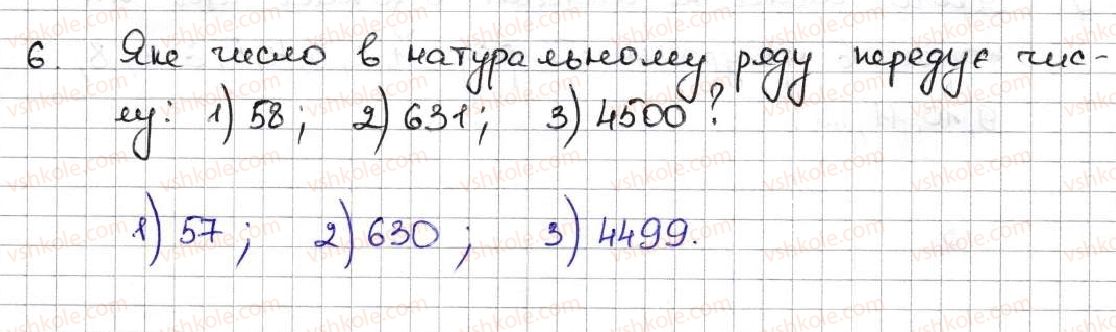 6. Яке число в натуральному ряду передує чис-
лу: 1) 58; 2) 631; 3) 4500?
1) 57; 2) 630; 3) 4499.